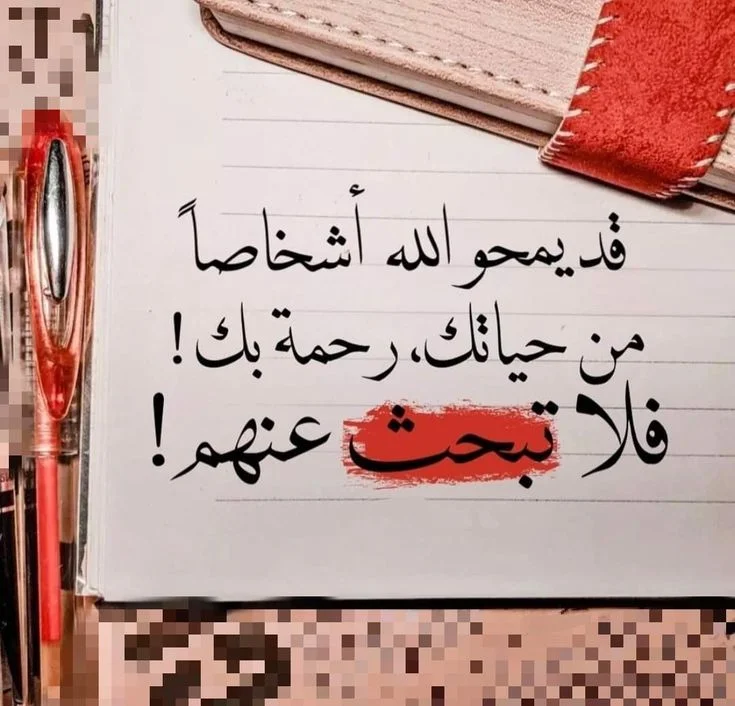 قد يمحو الله أشخاصاً
من حياتك، رحمة بك!
فلا تبحث عنهم!